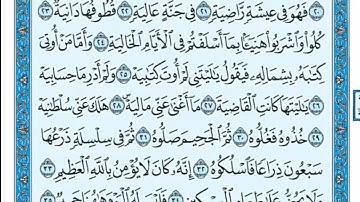 ٢٠ فَهُوَ فِي عِيشَةٍ رَّاضِيَةٍ ٢١ فِي جَنَّةٍ عَالِيَةٍ ٢٢ قُطُوفُهَا دَانِيَةٌ ٢٣
كُلُوا۟ وَٱشْرَبُوا۟ هَنِيٓـًٔۢا بِمَآ أَسْلَفْتُمْ فِي ٱلْأَيَّامِ ٱلْخَالِيَةِ ٢٤ وَأَمَّا مَنْ أُوتِيَ
كِتَٰبَهُۥ بِشِمَالِهِۦ فَيَقُولُ يَٰلَيْتَنِي لَمْ أُوتَ كِتَٰبِيَهْ ٢٥ وَلَمْ أَدْرِ مَا حِسَابِيَهْ
٢٦ يَٰلَيْتَهَا كَانَتِ ٱلْقَاضِيَةَ ٢٧ مَآ أَغْنَىٰ عَنِّي مَالِيَهْ ٢٨ هَلَكَ عَنِّي سُلْطَٰنِيَهْ
٢٩ خُذُوهُ فَغُلُّوهُ ٣٠ ثُمَّ ٱلْجَحِيمَ صَلُّوهُ ٣١ ثُمَّ فِي سِلْسِلَةٍ ذَرْعُهَا
سَبْعُونَ ذِرَاعًا فَٱسْلُكُوهُ ٣٢ إِنَّهُۥ كَانَ لَا يُؤْمِنُ بِٱللَّهِ ٱلْعَظِيمِ ٣٣
وَلَا يَحُضُّ عَلَىٰ طَعَامِ ٱلْمِسْكِينِ ٣٤ فَلَيْسَ لَهُ ٱلْيَوْمَ هَٰهُنَا حَمِيمٌ ٣٥